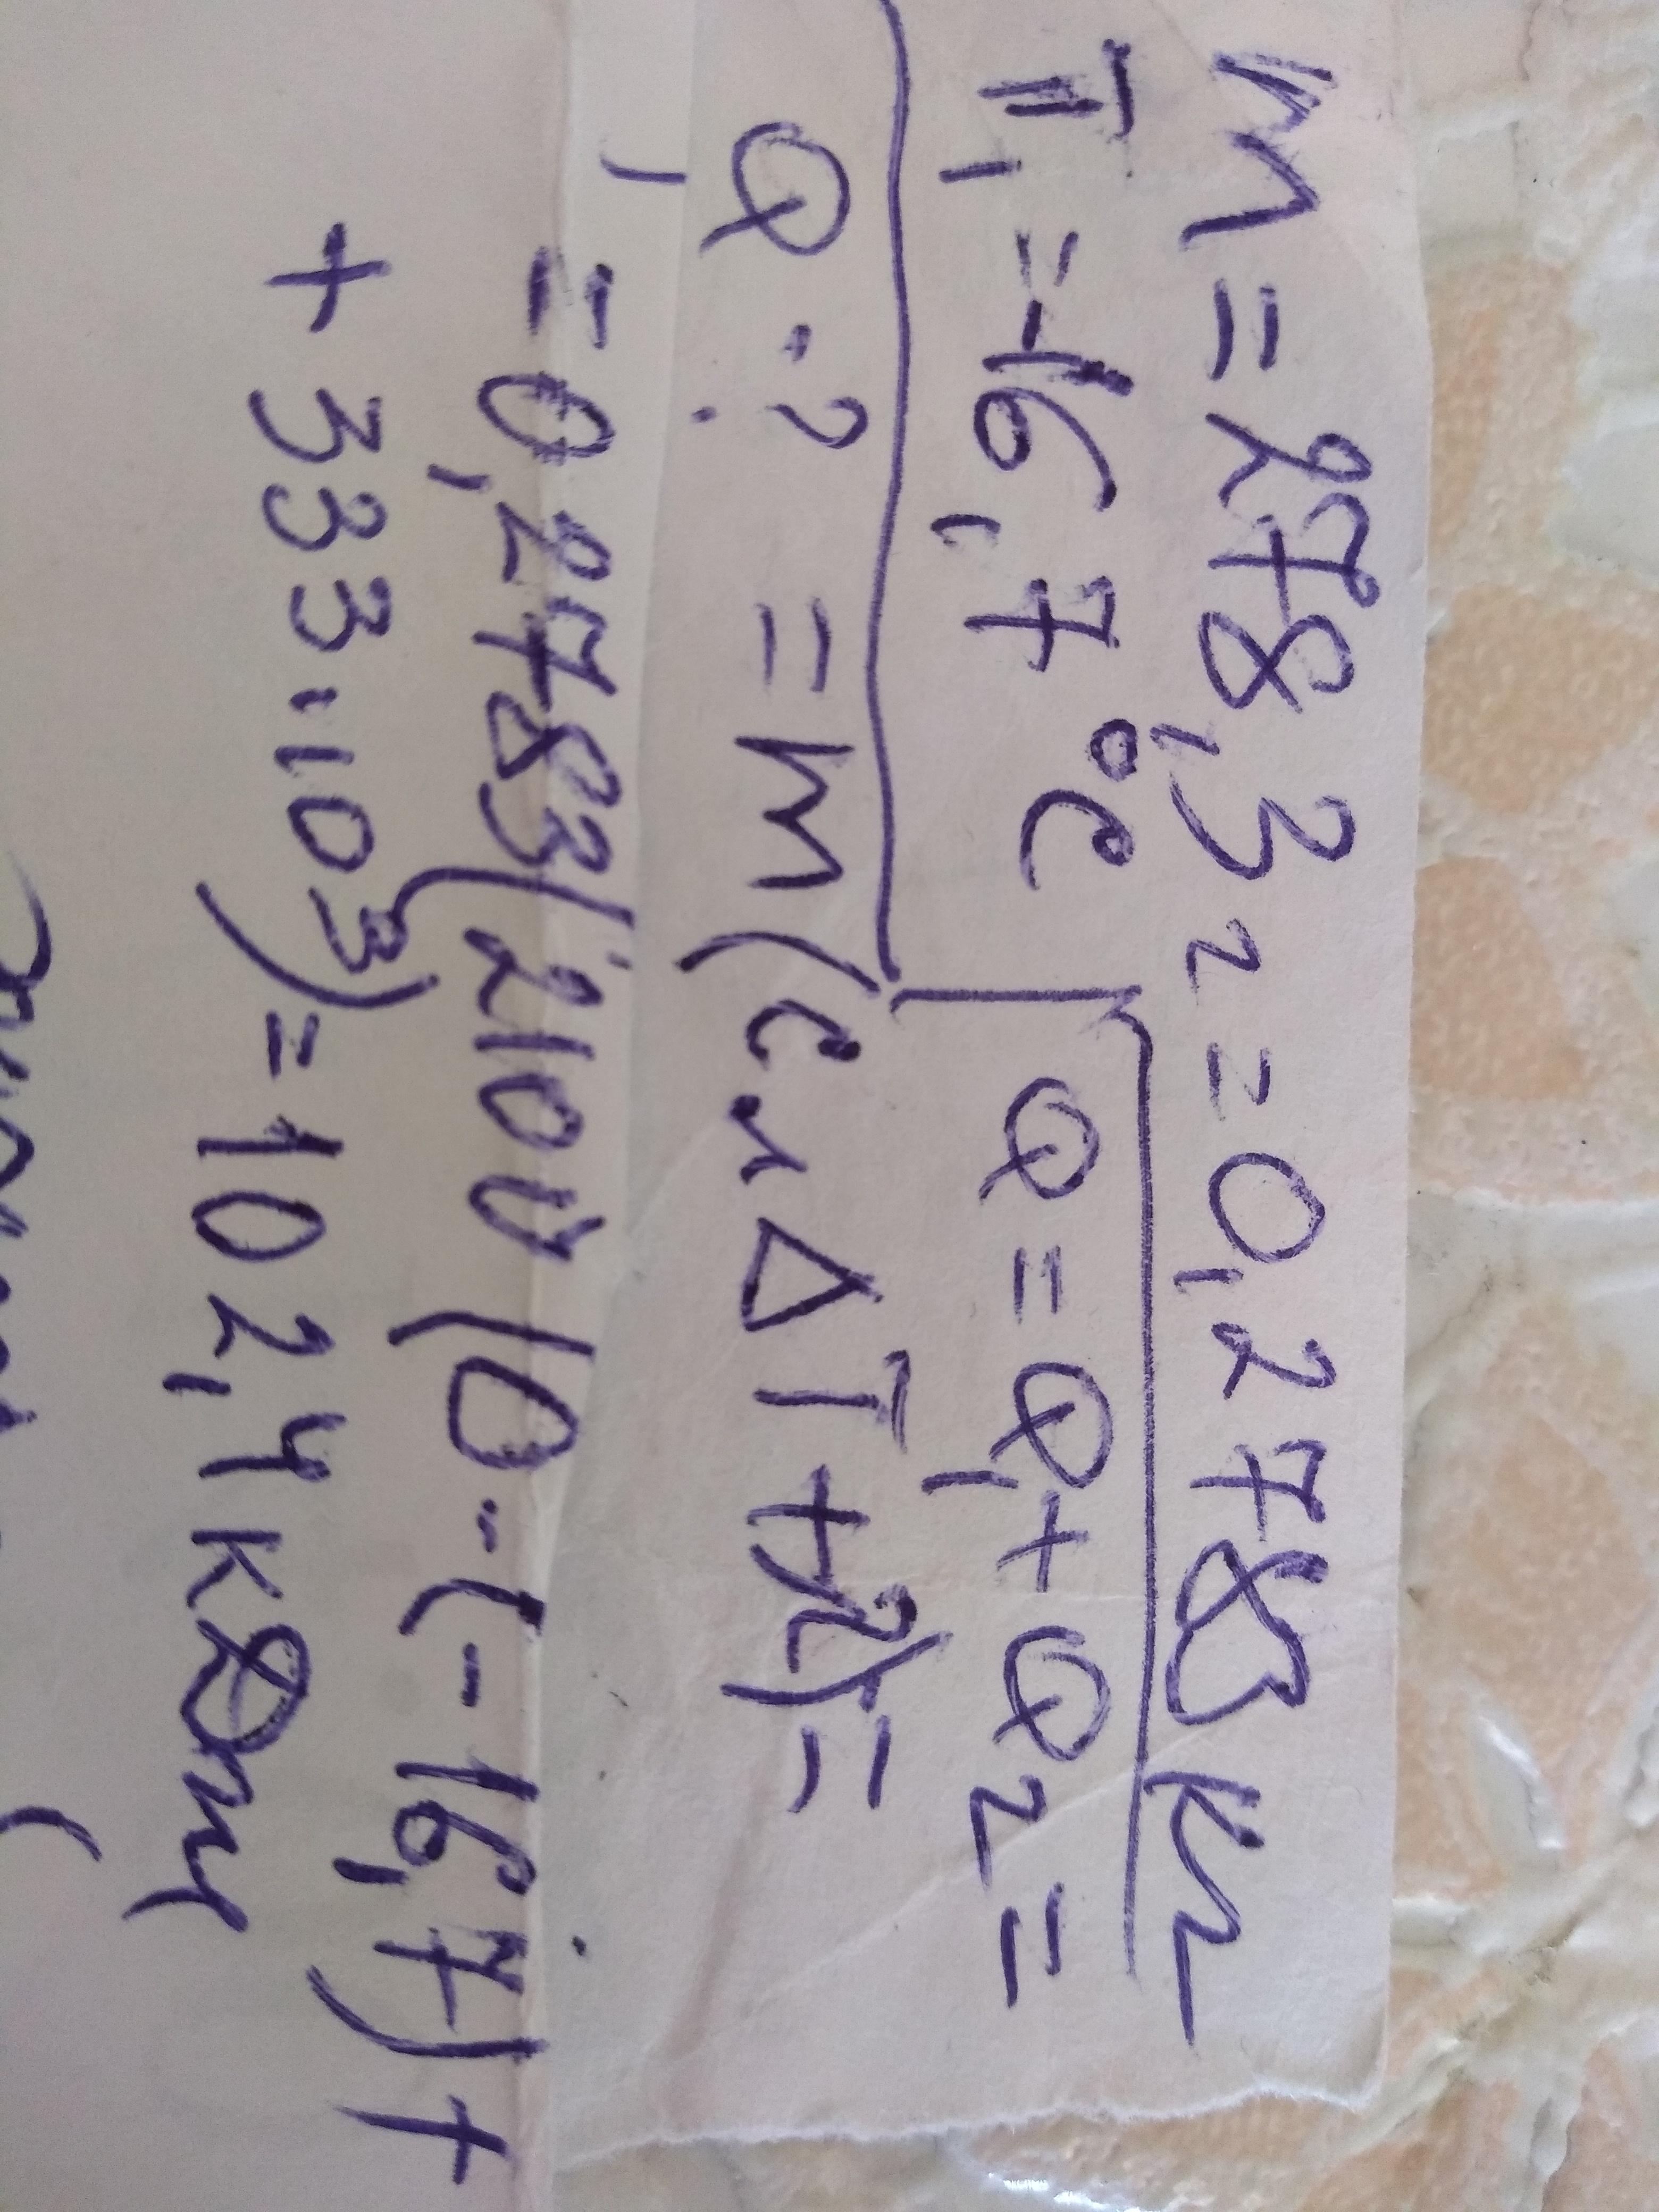 m = 278,3 г = 0,2783 кг
T₁ = -16,7 °C | Q = Q₁ + Q₂ =
Q - ? = m(cл ΔT + λ) =
= 0,2783(2100(0-(-16,7)+
+ 333·10³) = 102,4 кДж